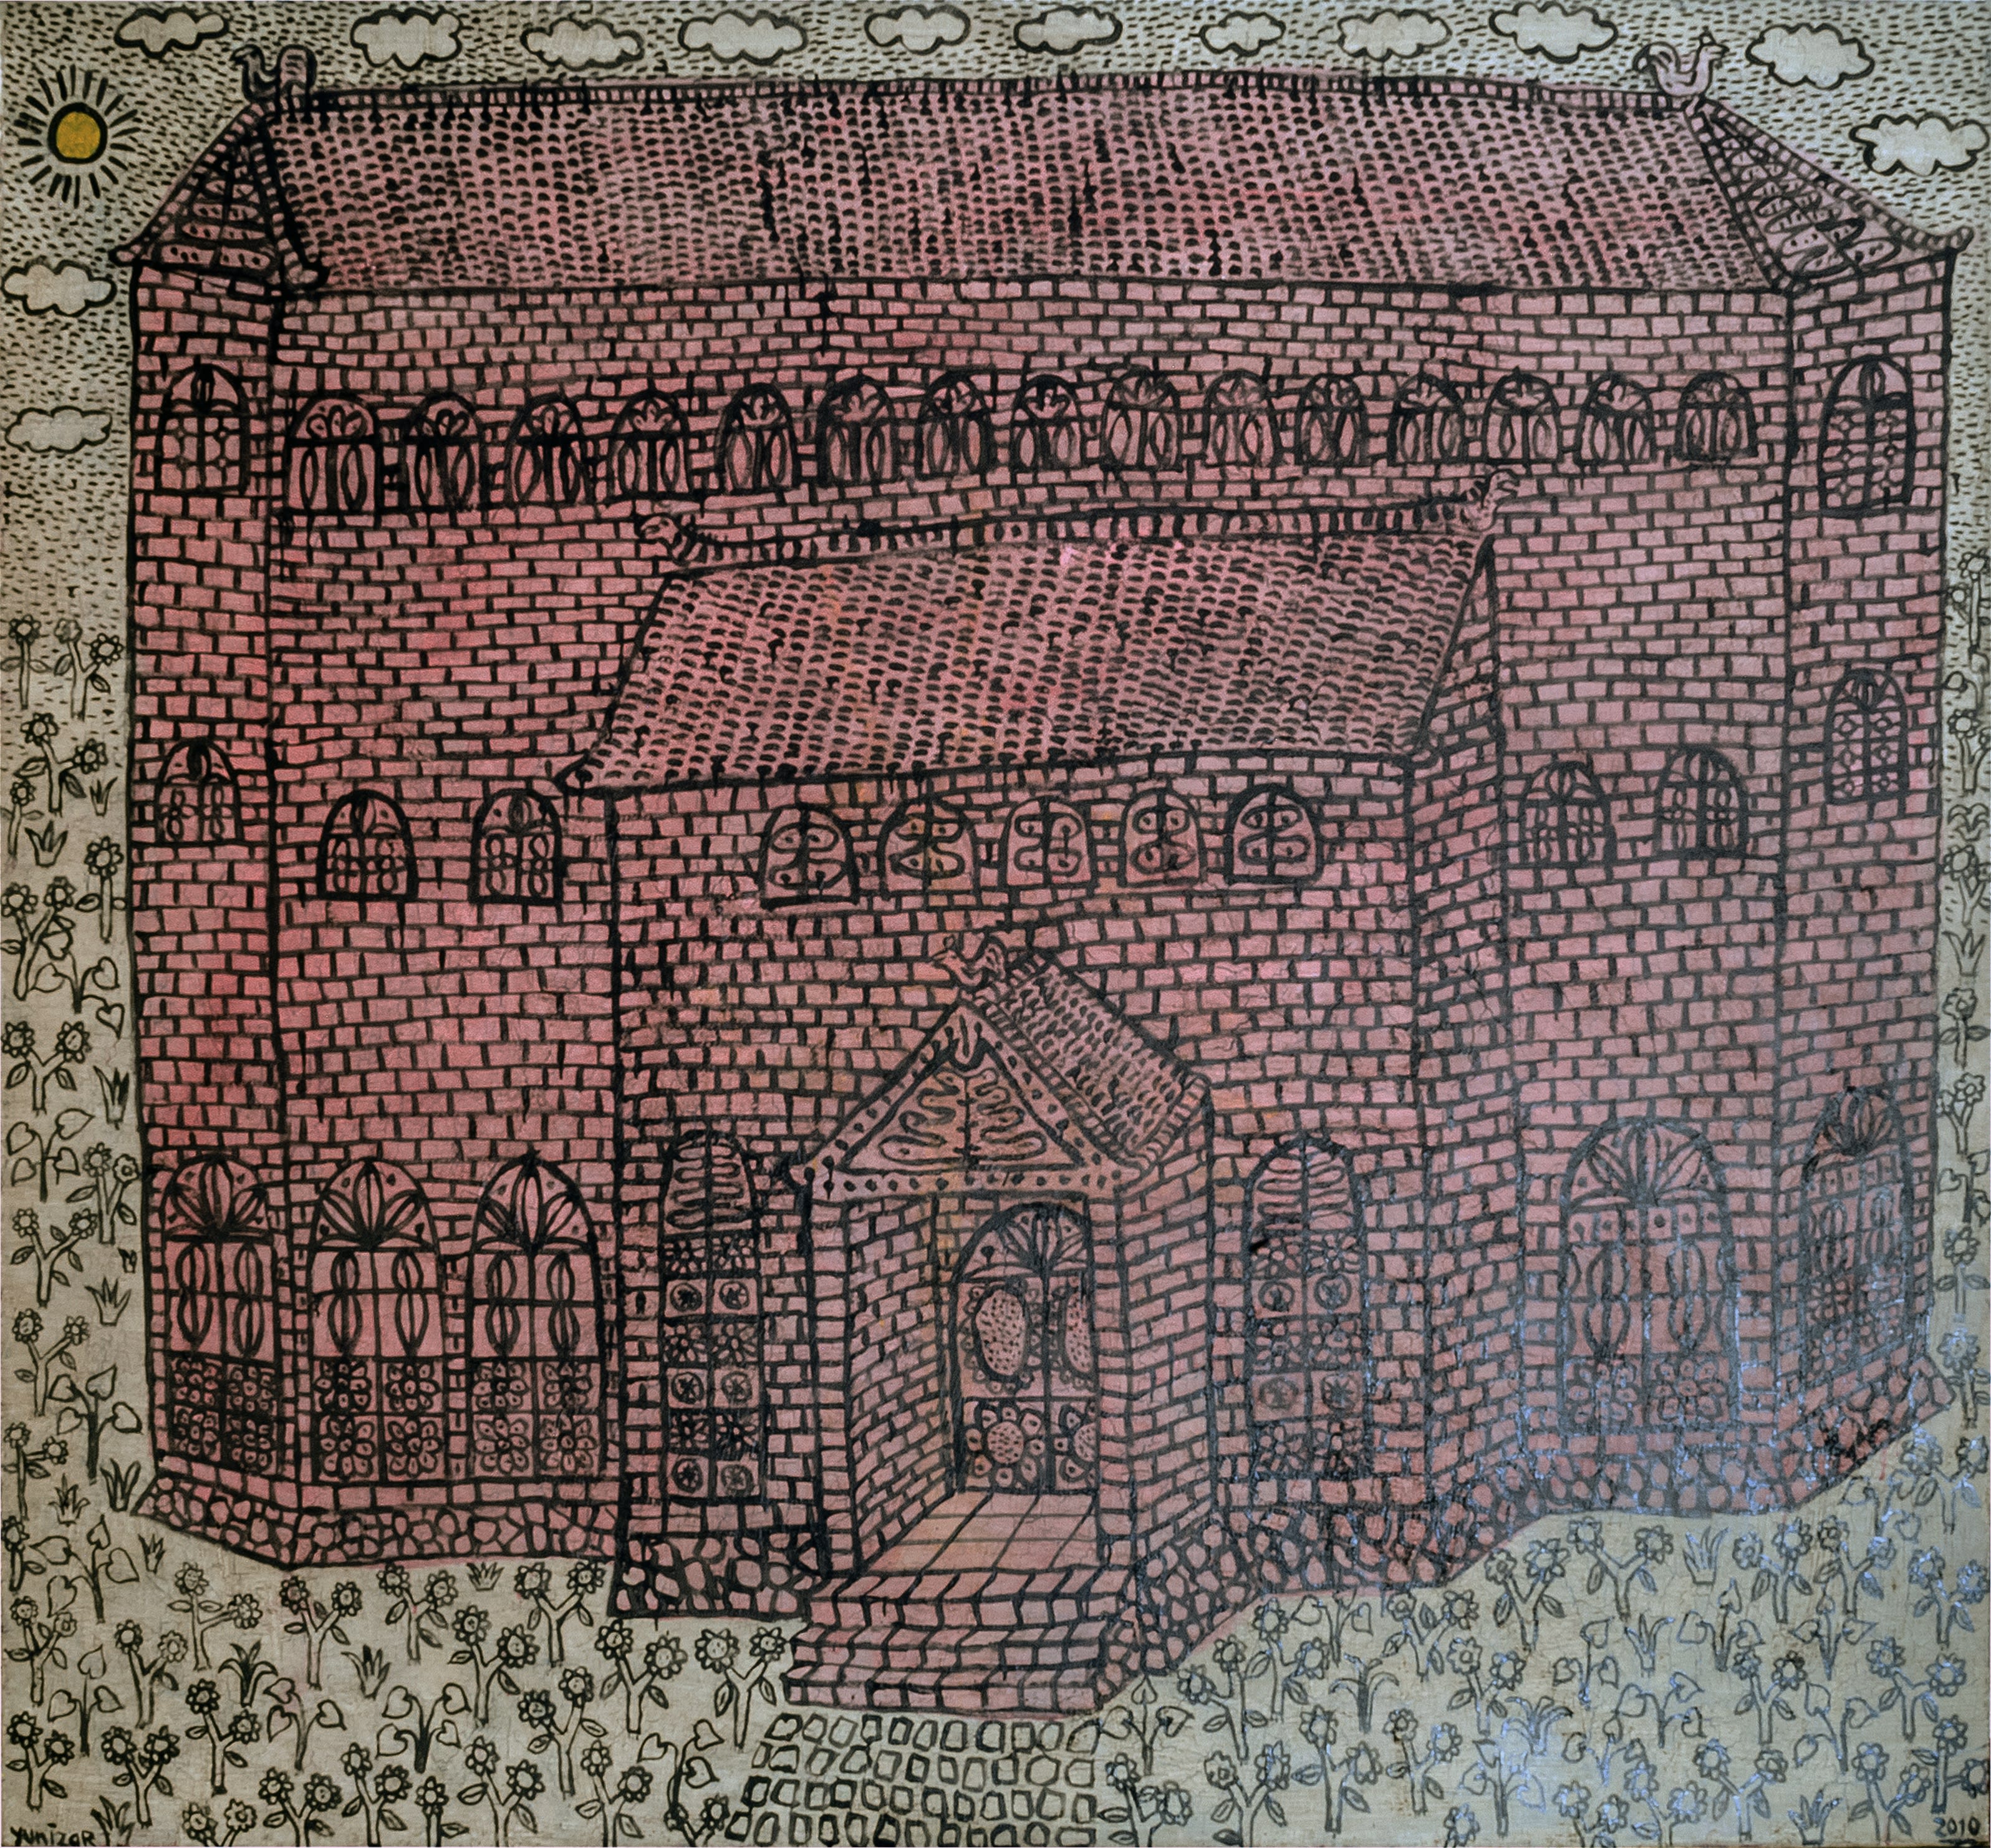 YUNIZAR
2010